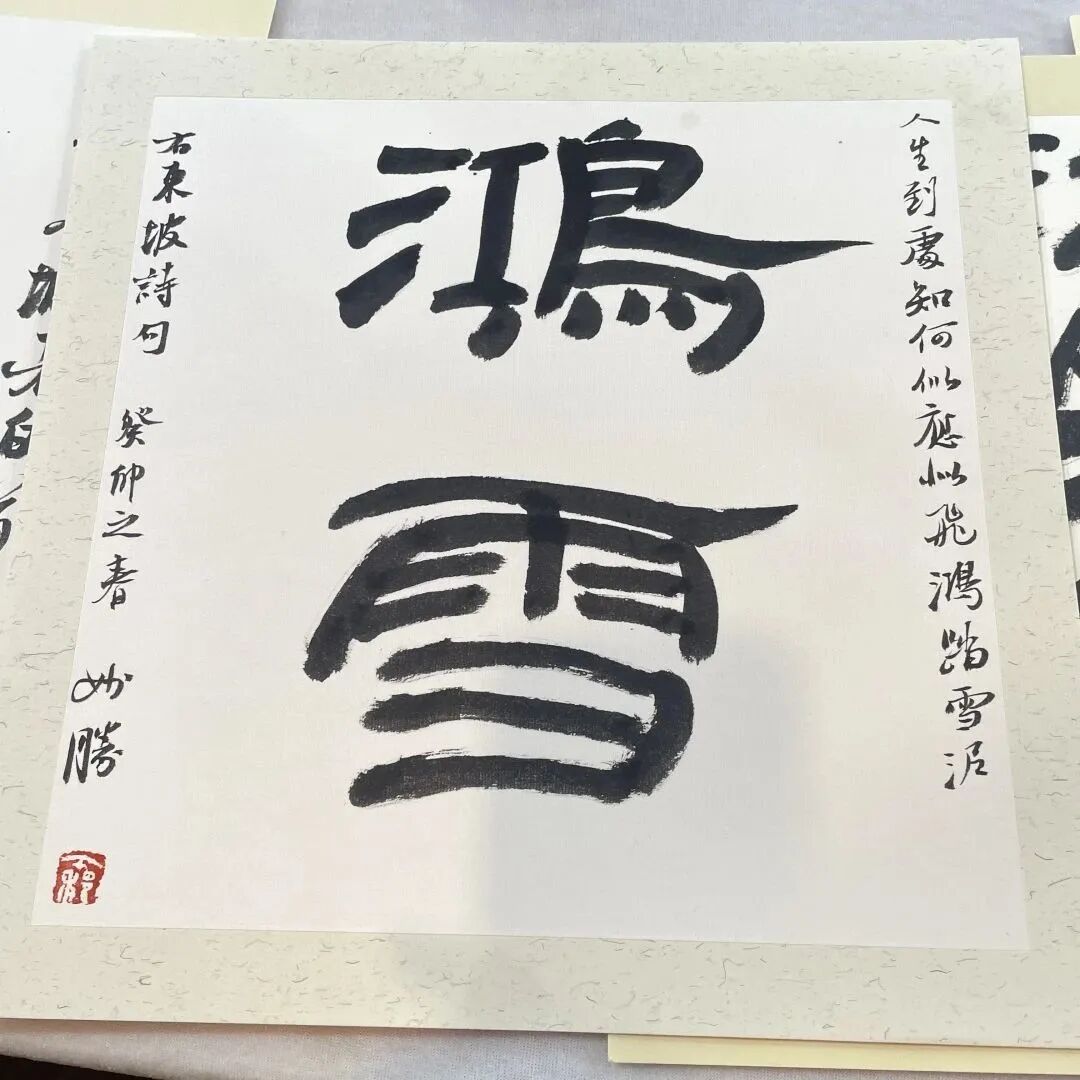 人生到處知何似應似飛鴻踏雪泥
鴻雪
右東坡詩句 癸卯之春 妙勝